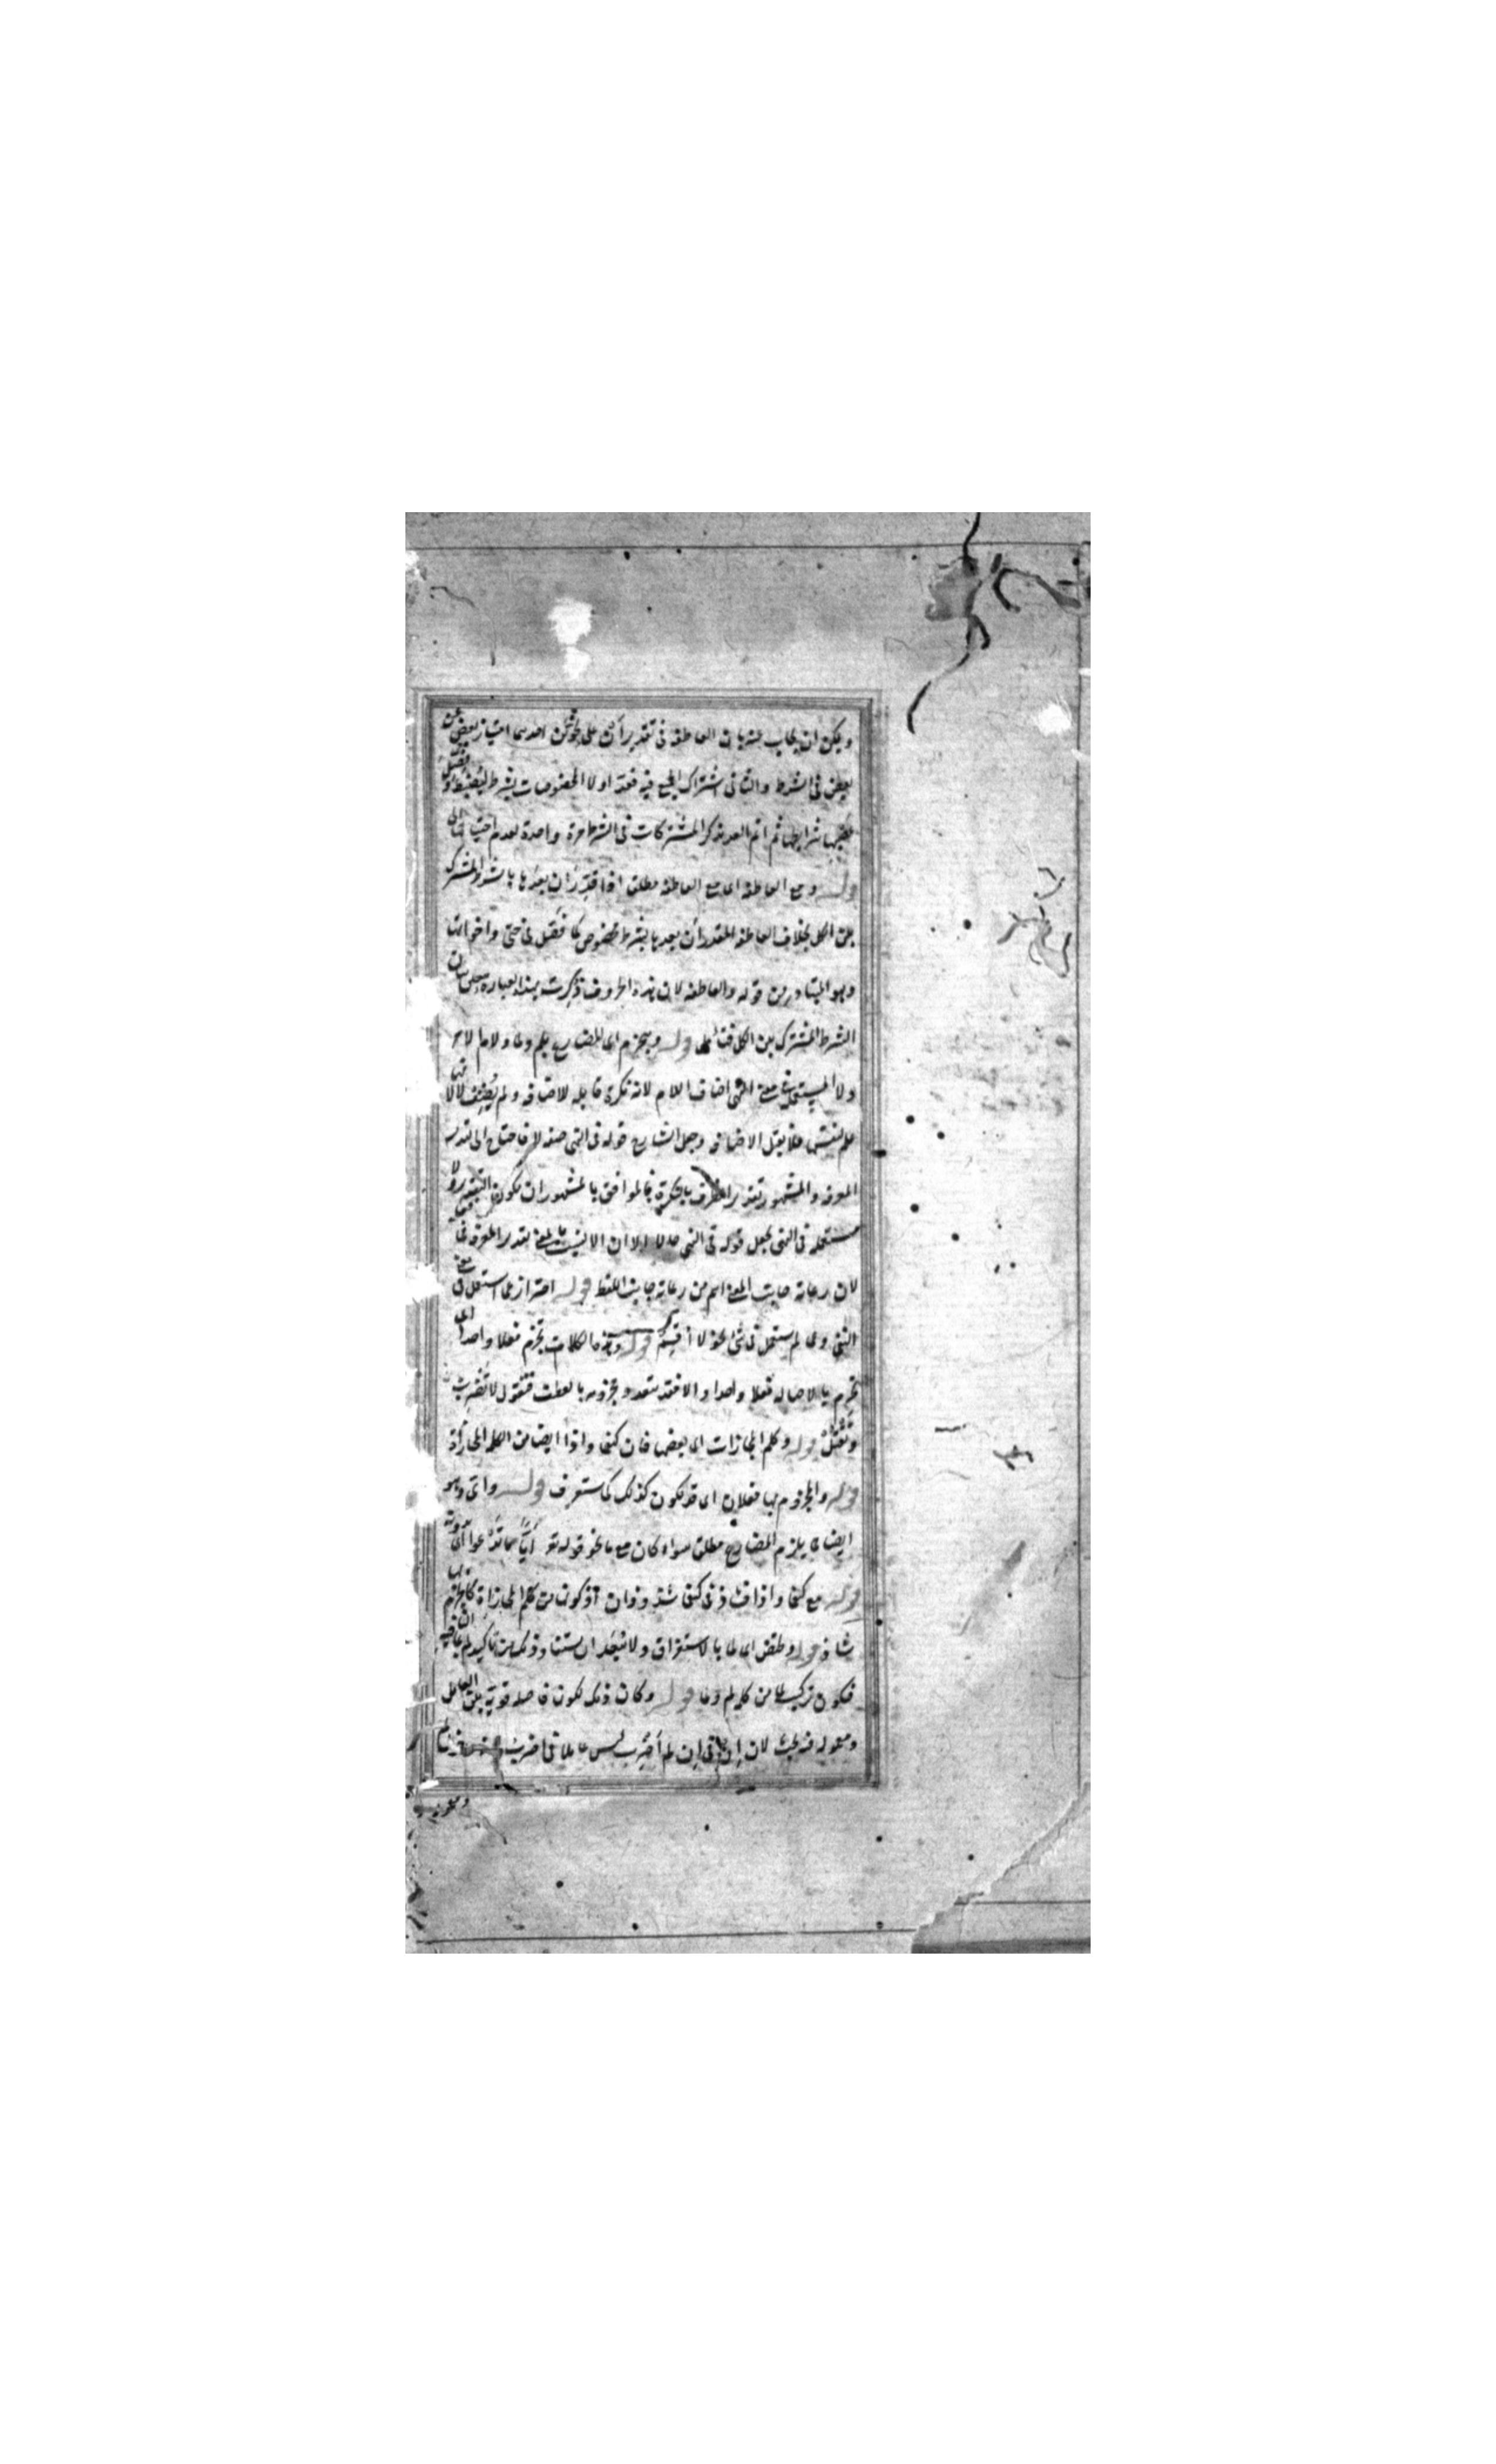 ويمكن ان يجاب عنه بان العاطفة فى تقدير أن على احديهما امتياز بعض عن
بعض فى الشرط والثانى اشتراك الجميع فيه فعدّ اولا المخصوصات بشرط
شرايطها ثم اتم العد بذكر المشتركات فى الشرط مرة واحدة لعدم
قوله ومع العاطفة اى مع العاطفة مطلقا اذا قدّر أن بعدها بالشرط المشترك
بين الكل بخلاف العاطفة المقدر أن بعدها بشرط مخصوص كما فصّل فى حتى واخواتها
وهو المتبادر من قوله والعاطفة لان هذه الحروف ذكرت بهذه العبارة
الشرط المشترك بين الكل فتأمل قوله وينجزم اى المضارع بلم ولما ولام الامر
ولا المستعملة فى معنى النهى اضاف اللام لانه نكرة قابلة للاضافة ولم يضف لا لانها
علم لنفسها فلا يقبل الاضافة وجعل الشارح قوله فى النهى صفة لا فاحتاج الى تقدير
المعرفة والمشهور تقدير الظرف بالنكرة فالموافق بالمشهور ان يكون التقدير ولا
مستعملة فى النهى بجعل قوله فى النهى حالا الا ان الانسب بالمعنى تقدير المعرفة
لان رعاية جانب المعنى اهم من رعاية جانب اللفظ قوله احتراز عما استعمل فى معنى
النفى وعما لم يستعمل فى شئ نحو لا أقسم قوله وهذه الكلمات تجزم فعلا واحدا اى
تجزم بالاصالة فعلا واحدا والا فقد يتعدد مجزومه بالعطف فتقول لا تضرب
وتقتل قوله وكلم المجازات اى بعضها فان كيفما واذا ايضا من الكلم المجازاة
قوله والمجزوم بها فعلان اى قد يكون كذلك كما ستعرف قوله واىّ وهو
ايضا يلزم المضارع مطلقا سواء كان مع ما نحو قوله تع أيّا ما تدعوا او بدونه
قوله مع كيفما واذا فشاذ فى كيفما شذوذان اذ كون من كلم المجازاة كالجزم بها
شاذ قوله اى لما بالاستغراق ولا من
فيكون تركيب لما من كلم لم وما قوله وكان ذلك لكون فاصلة قوية بين العامل
ومعموله فيه بحث لان إن فى إن لم أضرب ليس عاملا فى اضرب